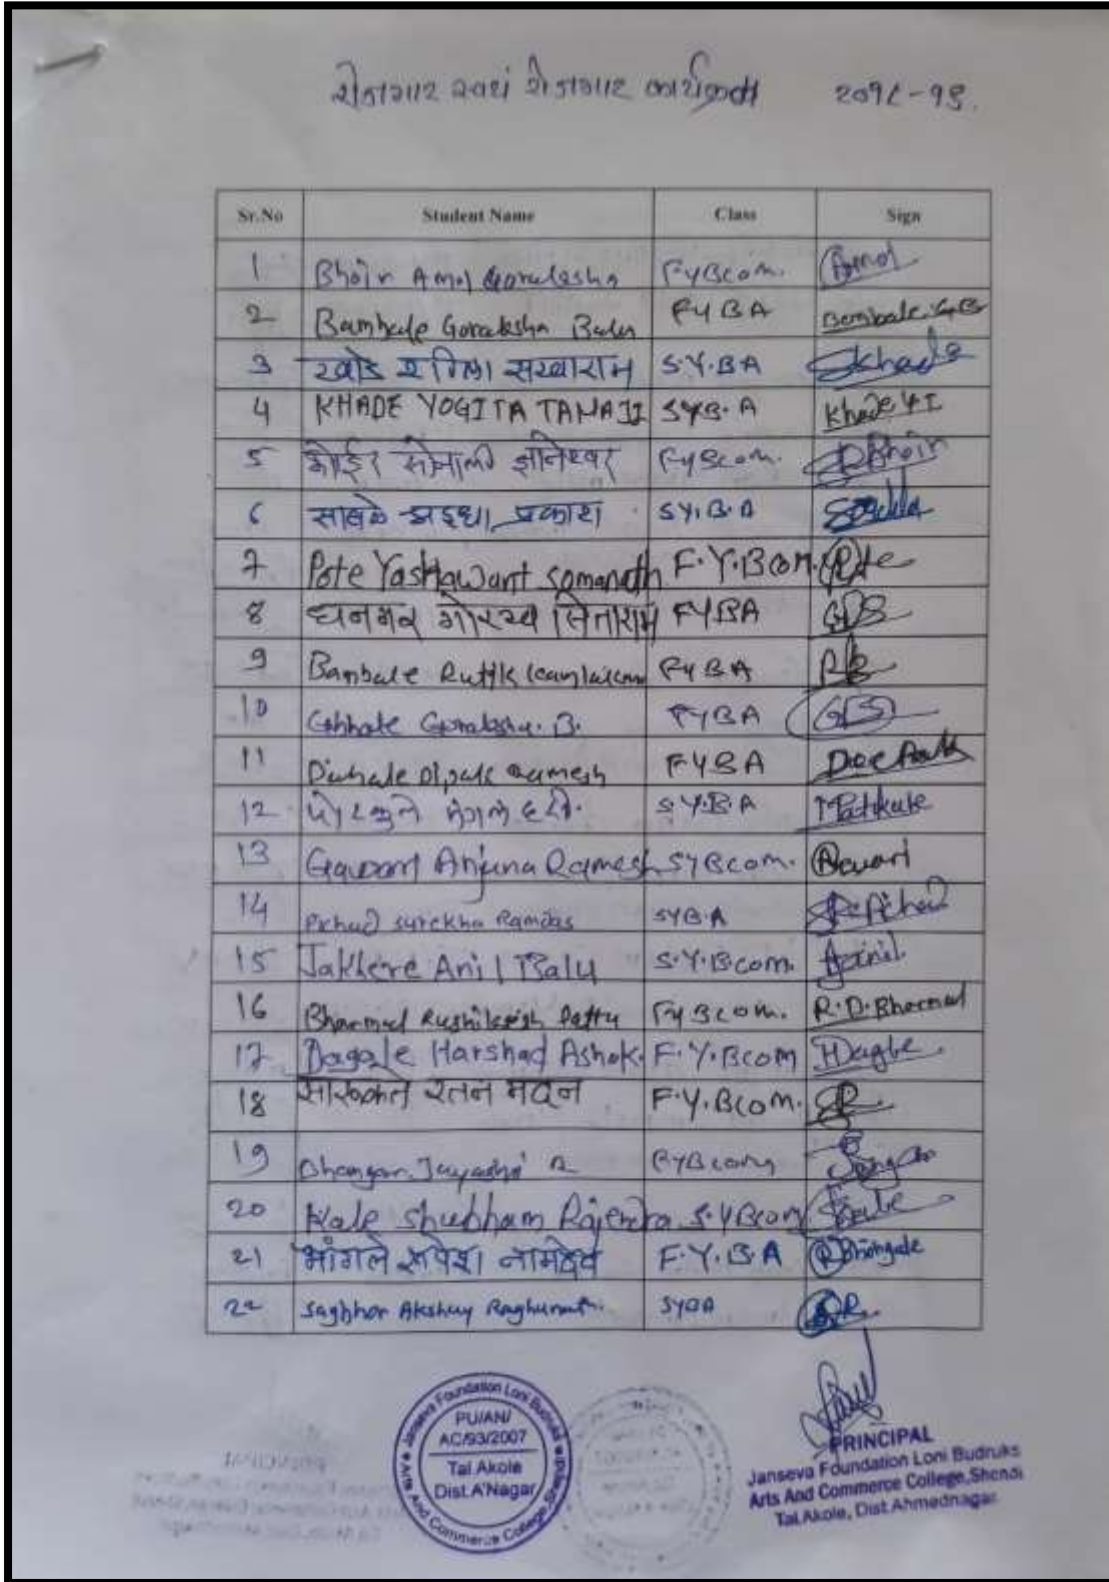 रोजगार स्वयं रोजगार कार्यक्रम २०१८-१९.
Sr.No Student Name Class Sign
1 Bhoir Amol Goraksha FyBcom. Amol
2 Bambale Goraksha FYBA Bambale G.B
3 खाडे सखाराम S.Y.BA SKhade
4 KHADE YOGITA TANAJI SYB.A Khade Y T
5 भोईर सोनाली ज्ञानेश्वर FyBcom. Bhoir
6 साबळे श्रद्धा प्रकाश SY.B.A
7 Pote Yashawant Somanath F.Y.BCom. Pote
8 धनगर गोरख सिताराम FYBA GDS
9 Bambale Rutik FYBA RB
10 Goraksha. B. FYBA GB
11 Dipak Ramesh FYBA Deepak
12 S.Y.B.A
13 Gawari Anjuna Ramesh SYBcom. Awari
14 Pichad Surekha Ramdas SYB.A Pichad
15 Jakhere Anil Balu S.Y.Bcom. Anil.
16 Bharmal Rushikesh Dattu FyBcom. R.D.Bharmal
17 Dagale Harshad Ashok. F.Y.Bcom HDagle.
18 सारुक्ते रतन मदन F.Y.BCom. SR
19 Dhangar Jayashri R FYBcom
20 Kale Shubham Rajendra S.YBcom Kale
21 भांगले रुपेश नामदेव F.Y.B.A RBhangale
22 Sagbhor Akshay Raghunath SYBA
Janseva Foundation Loni Budruks
PU/AN/
AC/93/2007
Tal.Akole
Dist.A'Nagar
Arts And Commerce College,Shendi
PRINCIPAL
Janseva Foundation Loni Budruks
Arts And Commerce College,Shendi
Tal.Akole, Dist.Ahmednagar.